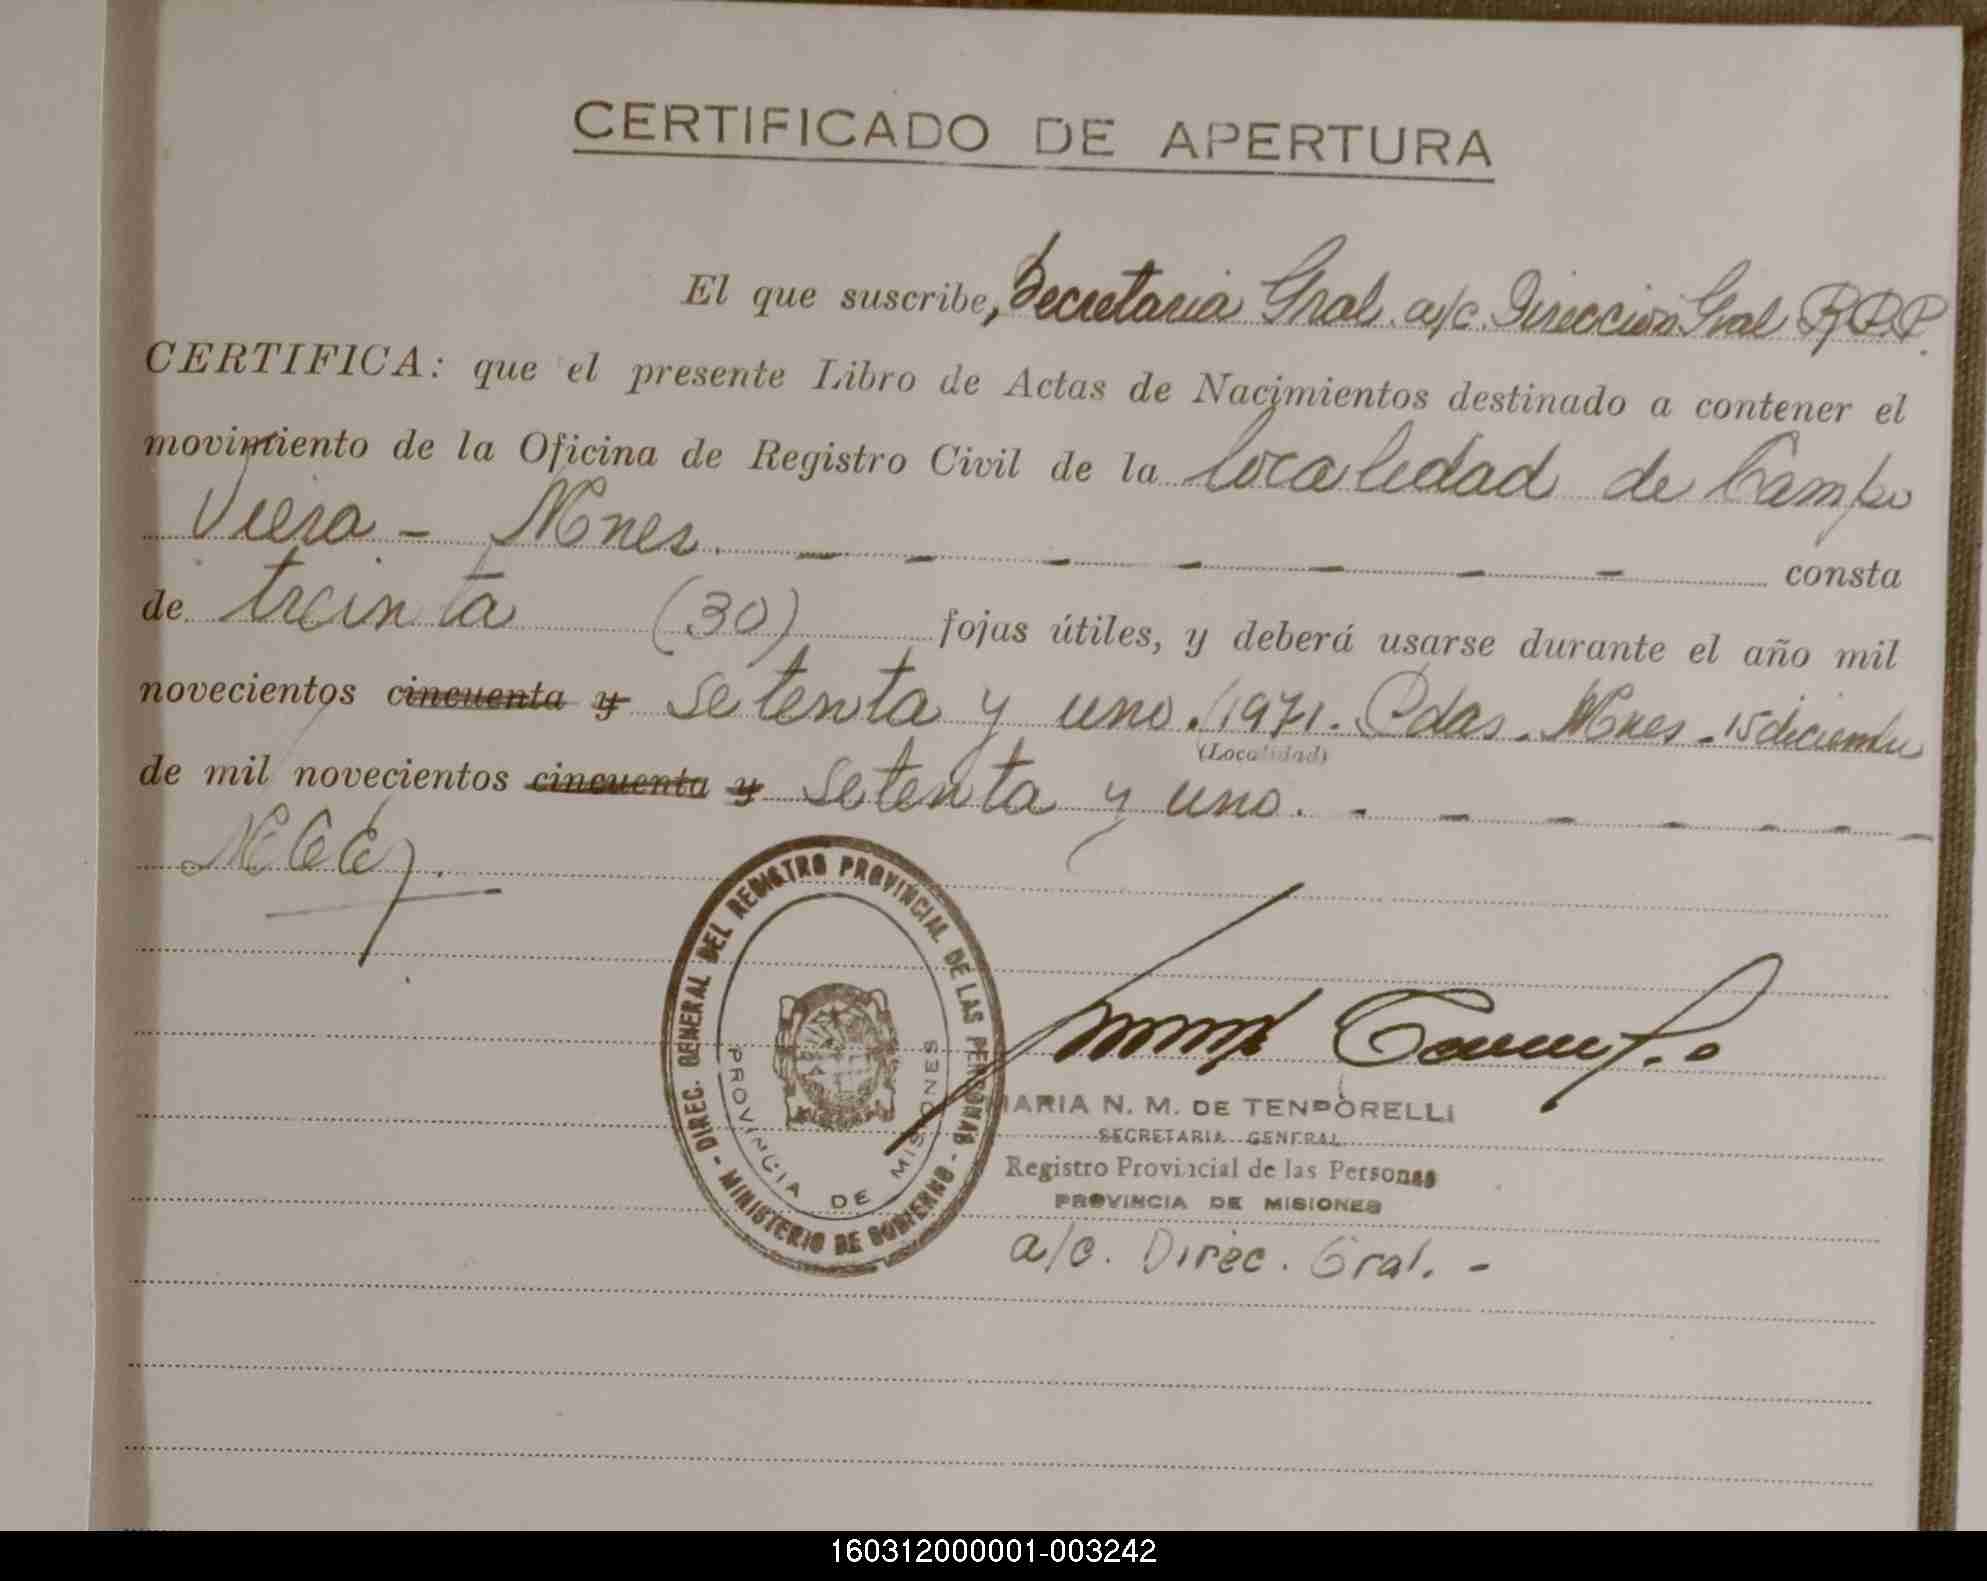 CERTIFICADO DE APERTURA
El que suscribe, Secretaria Gral. a/c. Dirección Gral R.P.P.
CERTIFICA: que el presente Libro de Actas de Nacimientos destinado a contener el
movimiento de la Oficina de Registro Civil de la localidad de Campo
Viera - Mnes. - - - - - - - consta
de treinta (30) fojas útiles, y deberá usarse durante el año mil
novecientos cincuenta y setenta y uno. /1971. Pdas. Mnes - 15 diciembre
(Localidad)
de mil novecientos cincuenta y setenta y uno. - - - - - - -
DIREC. GENERAL DEL REGISTRO PROVINCIAL DE LAS PERSONAS - MINISTERIO DE GOBIERNO -
PROVINCIA DE MISIONES
MARIA N. M. DE TENPORELLI
SECRETARIA GENERAL
Registro Provincial de las Personas
PROVINCIA DE MISIONES
a/c. Direc. Gral. -
160312000001-003242